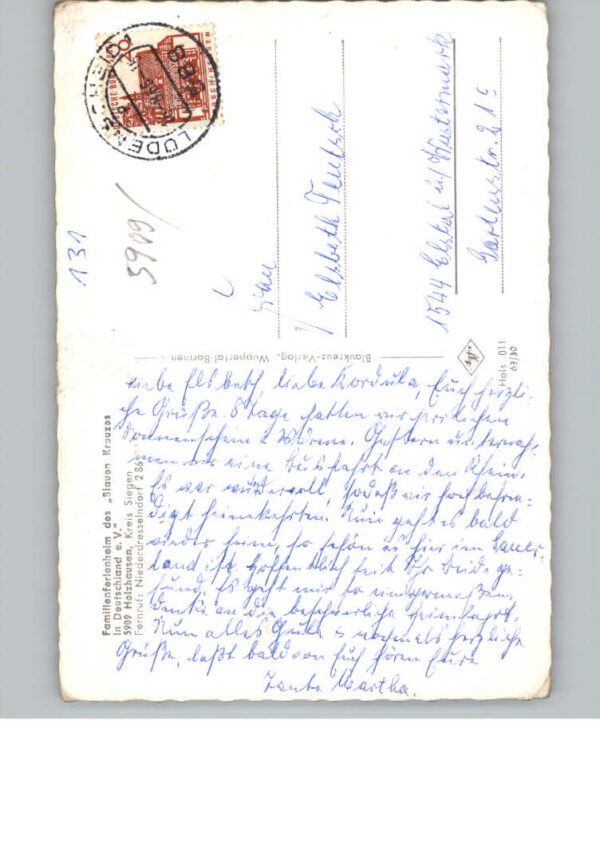 LÜDENSCHEID 1
20
131
5909/
Frau
Elsbeth Teutsch
1544 Elstal üb/Wustermark
Gartenstr. 21c
Blaukreuz-Verlag, Wuppertal-Barmen
Hols 011
63/30
Familienferienheim des „Blauen Kreuzes
in Deutschland e. V."
5909 Holzhausen, Kreis Siegen
Fernruf: Niederdresselndorf 286
Liebe Elsbeth liebe Kordula, Euch herzli-
che Grüße. 8 Tage hatten wir herrlichen
Sonnenschein u Wärme. Gestern unternah-
men wir eine Busfahrt an den Rhein.
Es war wundervoll, sodaß wir hochbefrie-
digt heimkehrten. Nun geht es bald
wieder heim, so schön es hier im Sauer-
land ist. Hoffentlich seit Ihr beide ge-
sund. Es geht mir so einigermaßen,
denke an die beschwerliche Heimfahrt.
Nun alles Gute u nochmals herzliche
Grüße, laßt bald von Euch hören Eure
Tante Martha.